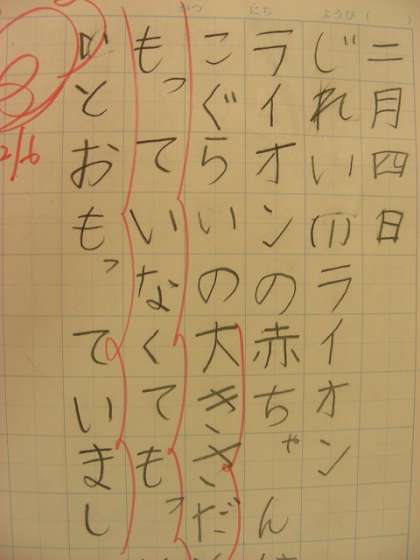 いつ にち ようび (
二月四日
じれい(1)ライオン
ライオンの赤ちゃん
こぐらいの大きさだ
もっていなくても
かとおもっていまし
2/6